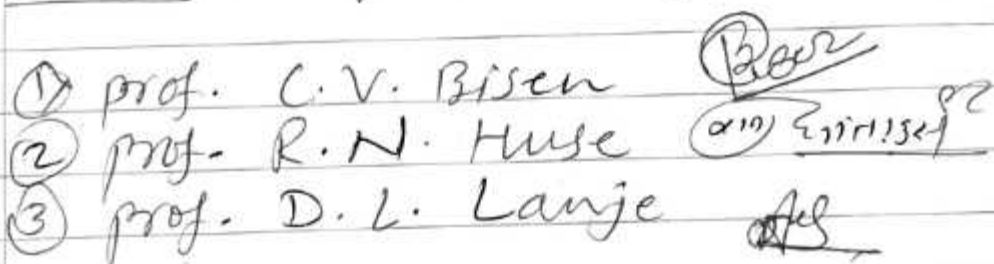 ① prof. C. V. Bisen
② prof. R. N. Huse
③ prof. D. L. Lanje